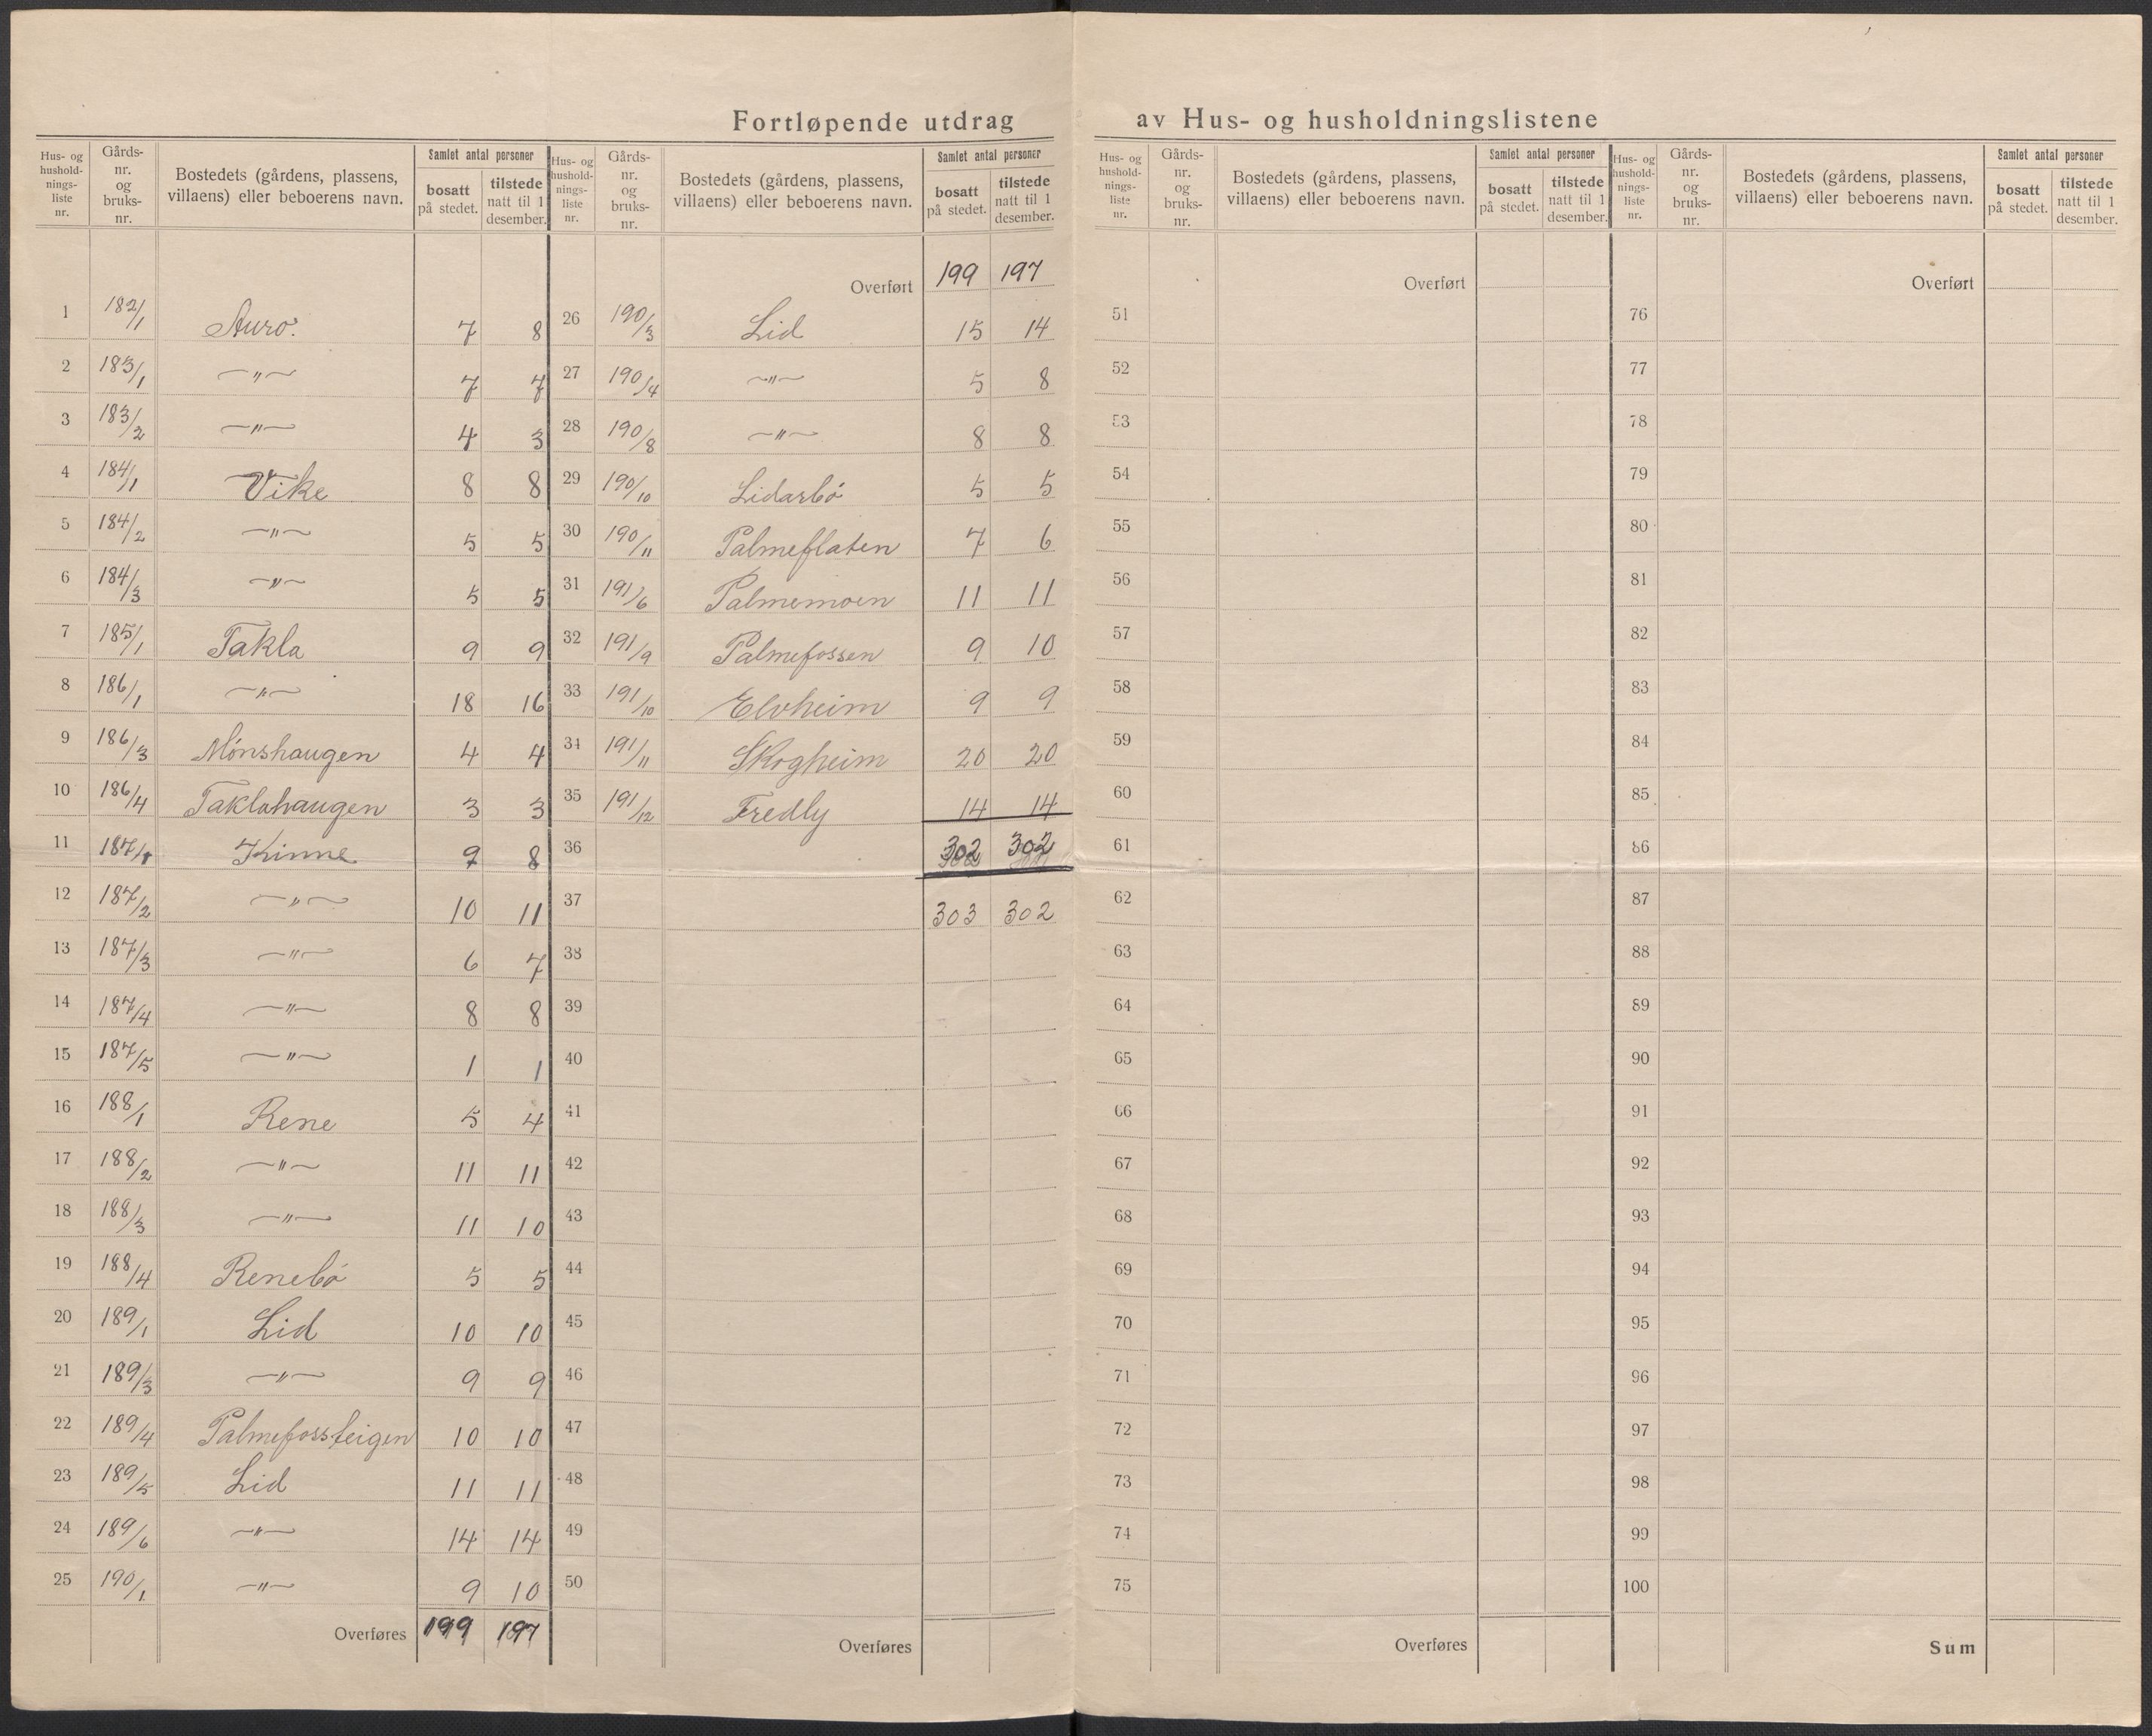 Fortløpende utdrag av Hus- og husholdningslistene
Hus- og hushold- nings- liste nr. Gårds- nr. og bruks- nr. Bostedets (gårdens, plassens, villaens) eller beboerens navn. Samlet antal personer bosatt på stedet. tilstede natt til 1 desember.
1 182/1 Auro. 7 8
2 183/1 —〃— 7 7
3 183/2 —〃— 4 3
4 184/1 Vike 8 8
5 184/2 —〃— 5 5
6 184/3 —〃— 5 5
7 185/1 Takla 9 9
8 186/1 —〃— 18 16
9 186/3 Mónshaugen 4 4
10 186/4 Taklahaugen 3 3
11 187/1 Kinne 9 8
12 187/2 —〃— 10 11
13 187/3 —〃— 6 7
14 187/4 —〃— 8 8
15 187/5 —〃— 1 1
16 188/1 Rene 5 4
17 188/2 —〃— 11 11
18 188/3 —〃— 11 10
19 188/4 Renebó 5 5
20 189/1 Lid 10 10
21 189/3 —〃— 9 9
22 189/4 Palmefossteigen 10 10
23 189/5 Lid 11 11
24 189/6 —〃— 14 14
25 190/1 —〃— 9 10
Overføres 199 197
Hus- og hushold- nings- liste nr. Gårds- nr. og bruks- nr. Bostedets (gårdens, plassens, villaens) eller beboerens navn. Samlet antal personer bosatt på stedet. tilstede natt til 1 desember.
Overført 199 197
26 190/3 Lid 15 14
27 190/4 —〃— 5 8
28 190/8 —〃— 8 8
29 190/10 Lidarbó 5 5
30 190/11 Palmeflaten 7 6
31 191/6 Palmemoen 11 11
32 191/9 Palmefossen 9 10
33 191/10 Elvheim 9 9
34 191/11 Skogheim 20 20
35 191/12 Fredly 14 14
36 302 302
37 303 302
38
39
40
41
42
43
44
45
46
47
48
49
50
Overføres
Hus- og hushold- nings- liste nr. Gårds- nr. og bruks- nr. Bostedets (gårdens, plassens, villaens) eller beboerens navn. Samlet antal personer bosatt på stedet. tilstede natt til 1 desember.
Overført
51
52
53
54
55
56
57
58
59
60
61
62
63
64
65
66
67
68
69
70
71
72
73
74
75
Overføres
Hus- og hushold- nings- liste nr. Gårds- nr. og bruks- nr. Bostedets (gårdens, plassens, villaens) eller beboerens navn. Samlet antal personer bosatt på stedet. tilstede natt til 1 desember.
Overført
76
77
78
79
80
81
82
83
84
85
86
87
88
89
90
91
92
93
94
95
96
97
98
99
100
Sum